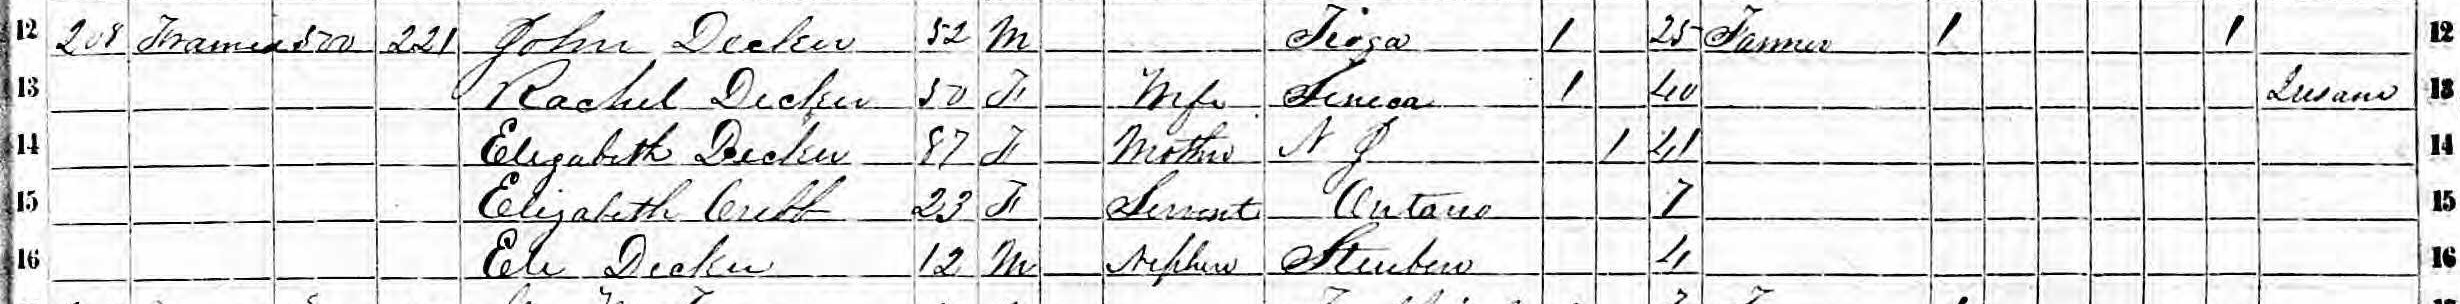 12 208 Framed 500 221 John Decker 52 M Tioga 1 25 Farmer 1 1 12
13 Rachel Decker 50 F Wife Seneca 1 40 Insane 13
14 Elizabeth Decker 87 F Mother N J 1 41 14
15 Elizabeth Cribb 23 F Servant Ontario 7 15
16 Eli Decker 12 M Nephew Steuben 4 16